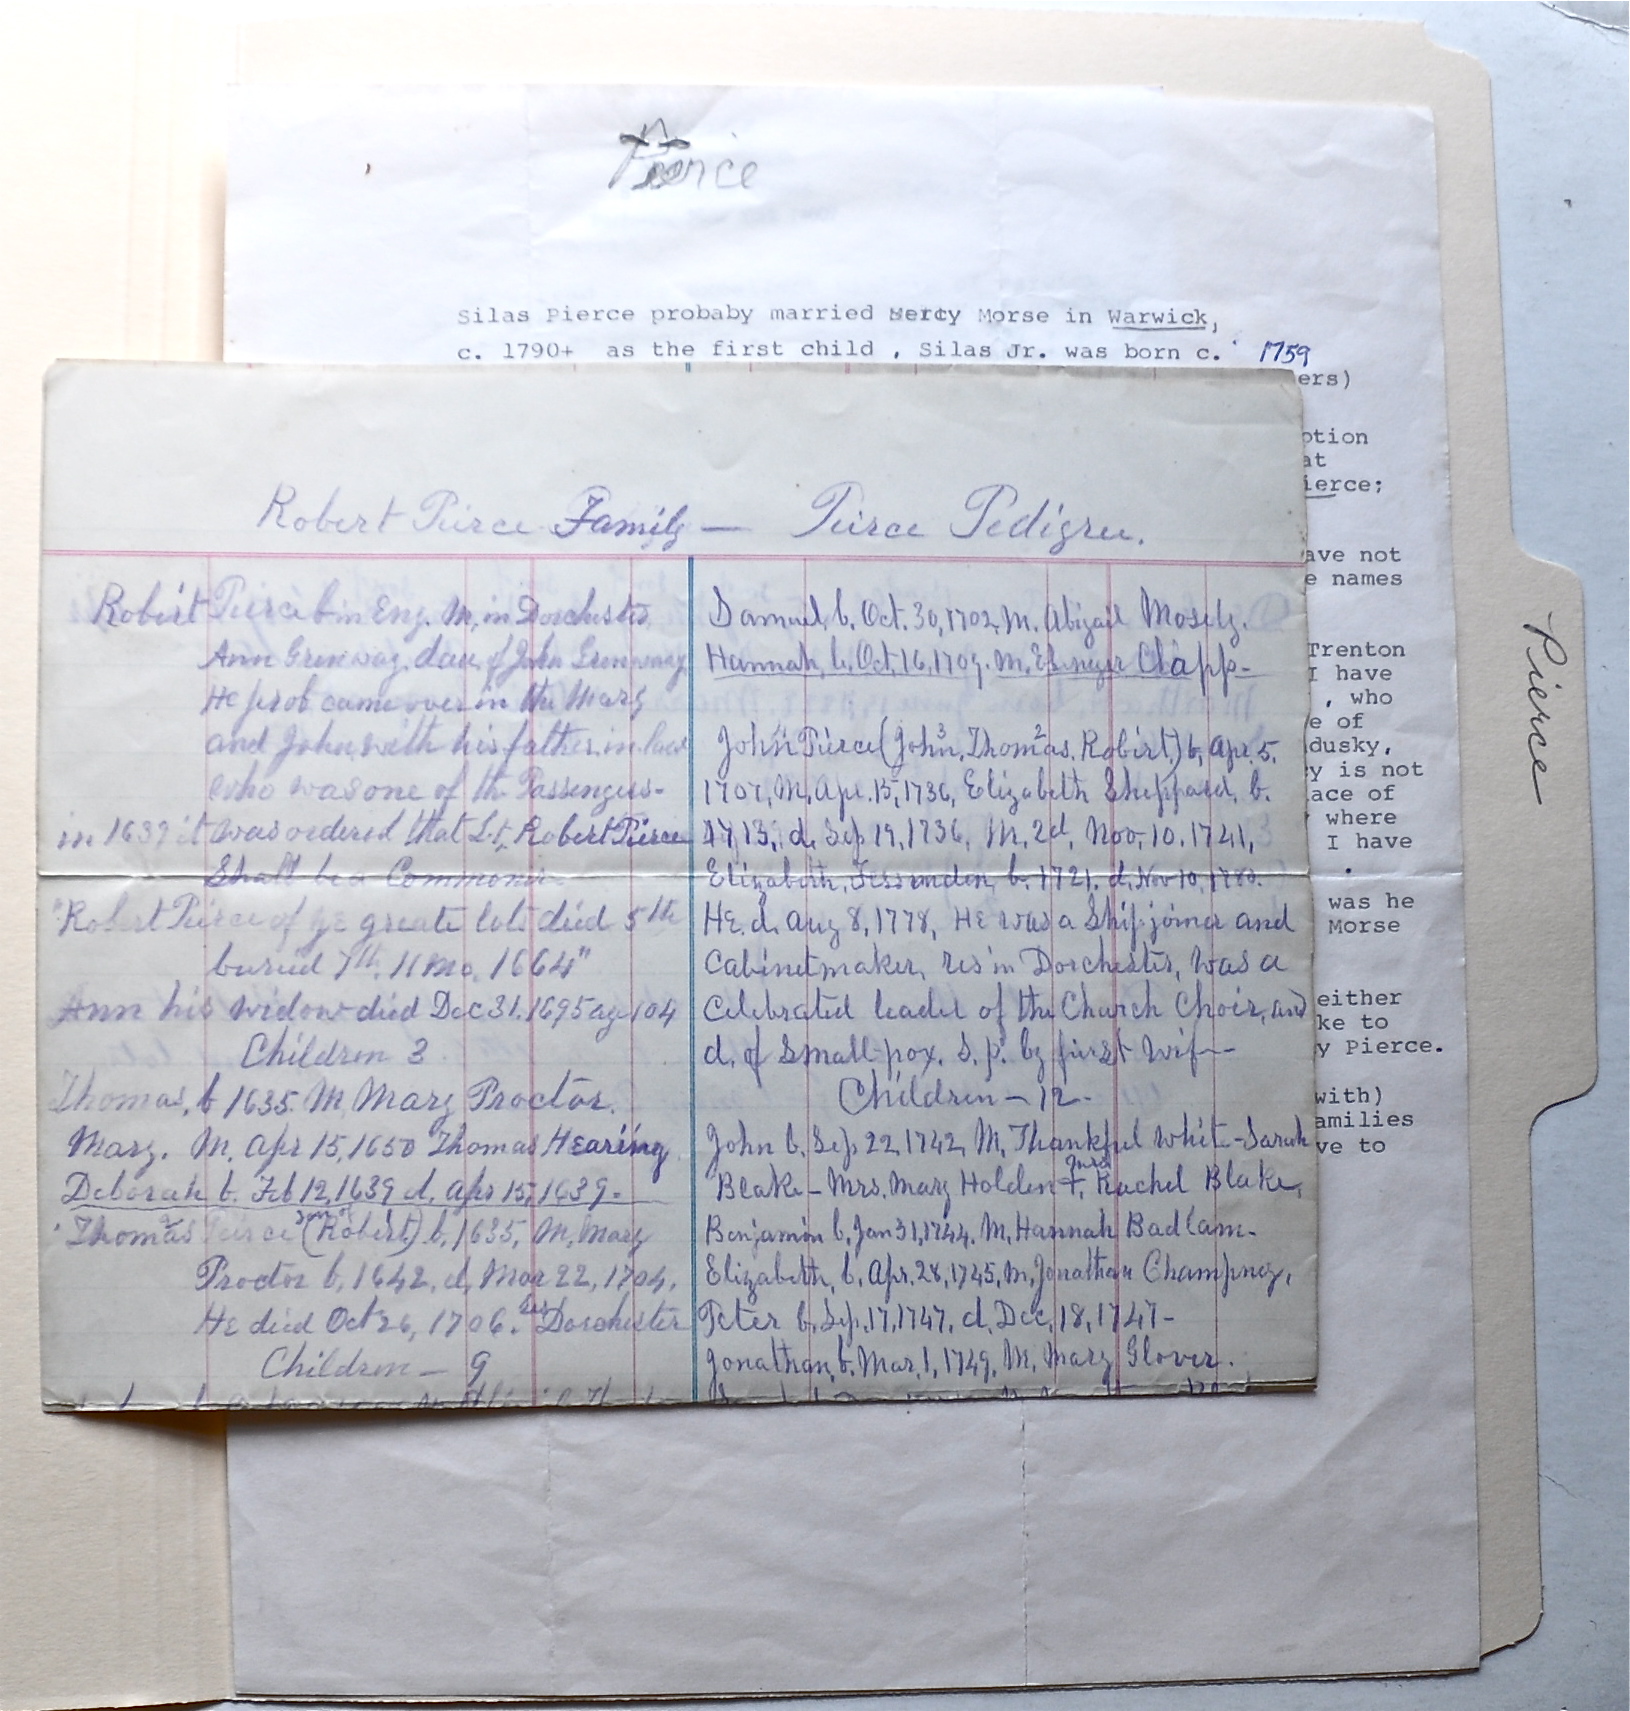 Pierce
Silas Pierce probaby married Mercy Morse in Warwick,
c. 1790+ as the first child , Silas Jr. was born c. 1759
ers)
ption
at
ierce;
ave not
e names
Trenton
I have
, who
e of
dusky,
y is not
ace of
where
I have
.
was he
Morse
either
ke to
y Pierce.
with)
amilies
ve to
Pierce
Robert Peirce Family — Peirce Pedigree.
Robert Peirce b in Eng. M, in Dorchester
Ann Greenway. dau. of John Greenway
He prob came over in the Mary
and John, with his father in law
who was one of the Passengers-
in 1639 it was ordered that Lt. Robert Peirce
Shall be a Commoner
"Robert Peirce of ye greate lots died 5th
buried 7th, 11 Mo. 1664"
Ann his widow died Dec 31. 1695 age 104
Children 3
Thomas, b 1635. M Mary Proctor.
Mary. M, Apr 15, 1650 Thomas Hearing
Deborah b. Feb 12, 1639 d. Apr 15, 1639-
Thomas 2 Peirce (son of Robert) b, 1635, M, Mary
Proctor b, 1642, d, Mar 22, 1704,
He died Oct 26, 1706. res Dorchester
Children — 9
Samuel, b. Oct. 30, 1702, M. Abigail Mosely.
Hannah, b. Oct, 16, 1709. M. Ebenezer Clapp-
John Peirce (John, 3 Thomas, 2 Robert,) b, Apr, 5,
1707, M, Apr. 15, 1736, Elizabeth Sheppard, b.
1713, d, Sep 19, 1736, M, 2d, Nov, 10. 1741,
Elizabeth, Fessenden, b. 1721. d. Nov 10, 1780.
He. d. Aug 8, 1778, He was a Ship joiner and
Cabinetmaker, res in Dorchester, was a
Celebrated leader of the Church Choir, and
d. of Small-pox. S. p. by first wife—
Children — 12-
John b. Sep 22, 1742, M, Thankful White-Sarah
Blake - Mrs. Mary Holden +, Mrs Rachel Blake,
Benjamin b, Jan 31, 1744, M, Hannah Badlam-
Elizabeth, b, Apr, 28, 1745, M, Jonathan Champney,
Peter b, Sep, 17, 1747, d, Dec, 18, 1747-
Jonathan, b. Mar, 1, 1749, M, Mary Glover.